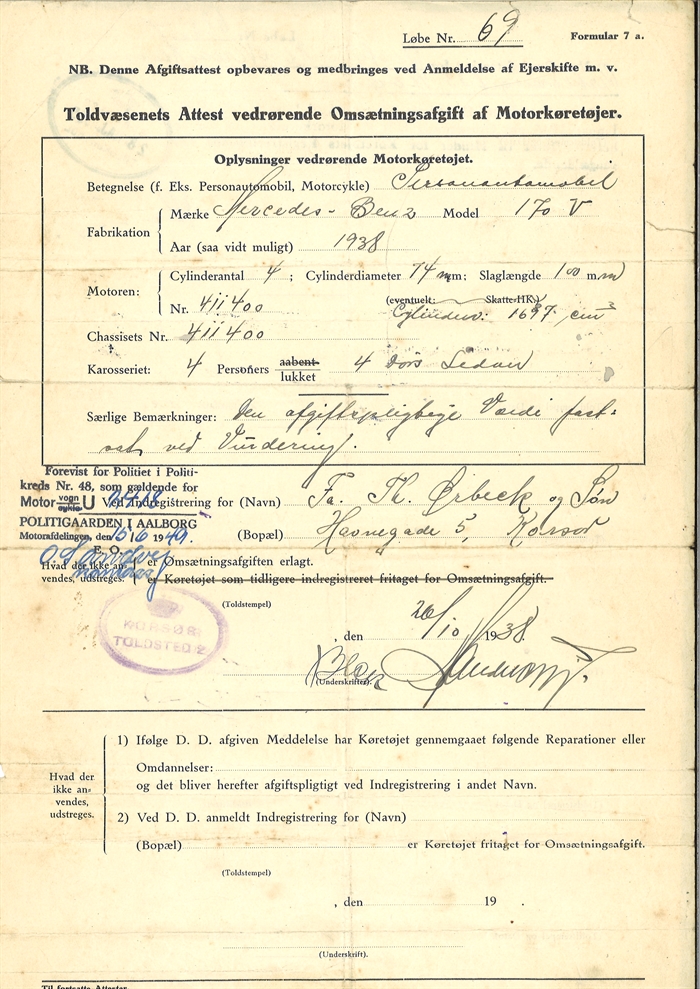 Løbe Nr. 69 Formular 7 a.
NB. Denne Afgiftsattest opbevares og medbringes ved Anmeldelse af Ejerskifte m. v.
Toldvæsenets Attest vedrørende Omsætningsafgift af Motorkøretøjer.
Oplysninger vedrørende Motorkøretøjet.
Betegnelse (f. Eks. Personautomobil, Motorcykle) Personautomobil
Fabrikation
Mærke Mercedes-Benz Model 170 V
Aar (saa vidt muligt) 1938
Motoren:
Cylinderantal 4 ; Cylinderdiameter 74 mm; Slaglængde 100 m.m
Nr. 411400 (eventuelt: Skatte-HK.)
Cylinderv: 1697 cm³
Chassisets Nr. 411400
Karosseriet: 4 Personers aabent lukket 4 Dörs Sedan
Særlige Bemærkninger: Den afgiftspligtige Værdi fast-
sat ved Vurdering.
Forevist for Politiet i Politi-
kreds Nr. 48, som gældende for
Motor vogn cykle U Ved Indregistrering for (Navn) Fa. Th. Ørbeck og Søn
POLITIGAARDEN I AALBORG
Motorafdelingen, den 15/6 1949. (Bopæl) Havnegade 5, Korsør
E. O.
Hvad der ikke an-
vendes, udstreges.
er Omsætningsafgiften erlagt.
er Køretøjet som tidligere indregistreret fritaget for Omsætningsafgift.
(Toldstempel)
KORSØR
TOLDSTED 2
, den 26/10 1938
(Underskrifter).
Hvad der
ikke an-
vendes,
udstreges.
1) Ifølge D. D. afgiven Meddelelse har Køretøjet gennemgaaet følgende Reparationer eller
Omdannelser:
og det bliver herefter afgiftspligtigt ved Indregistrering i andet Navn.
2) Ved D. D. anmeldt Indregistrering for (Navn)
(Bopæl) er Køretøjet fritaget for Omsætningsafgift.
(Toldstempel)
, den 19 .
(Underskrift).
Til fortsatte Attester.